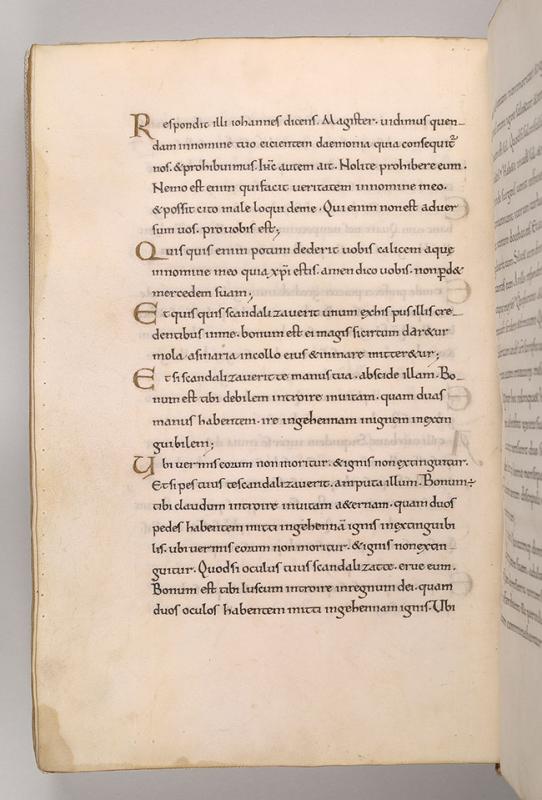 Respondit illi iohannes dicens. Magister. uidimus quen-
dam innomine tuo eicientem daemonia quia consequit᷑
nos. & prohibuimus. autem ait. Nolite prohibere eum.
Nemo est enim quifaciat ueritatem innomine meo.
& possit cito male loqui deme. Qui enim non est aduer
sum uos. pro uobis est;
Quis quis enim potum dederit uobis calicem aque
innomine meo quia xp̄i estis. amen dico uobis. non pd&
mercedem suam;
Et quis quis scandalizauerit unum exhis pusillis cre-
dentibus inme. bonum est ei magis si circumdar&ur
mola asinaria incollo eius & inmare mitter&ur;
Et si scandalizauerit te manus tua. abscide illam. Bo-
num est tibi debilem introire inuitam. quam duas
manus habentem. ire ingehennam inignem inextin
guibilem;
Ubi uermis eorum non moritur. & ignis non extinguitur.
Et si pes tuus te scandalizauerit. amputa illum. Bonum ÷
tibi claudum introire inuitam a&ernam. quam duos
pedes habentem mitti ingehennā ignis inextinguibi
lis. ubi uermis eorum non moritur. & ignis non extin-
guitur. Quodsi oculus tuus scandalizat te. erue eum.
Bonum est tibi luscum introire inregnum dei. quam
duos oculos habentem mitti ingehennam ignis. Ubi